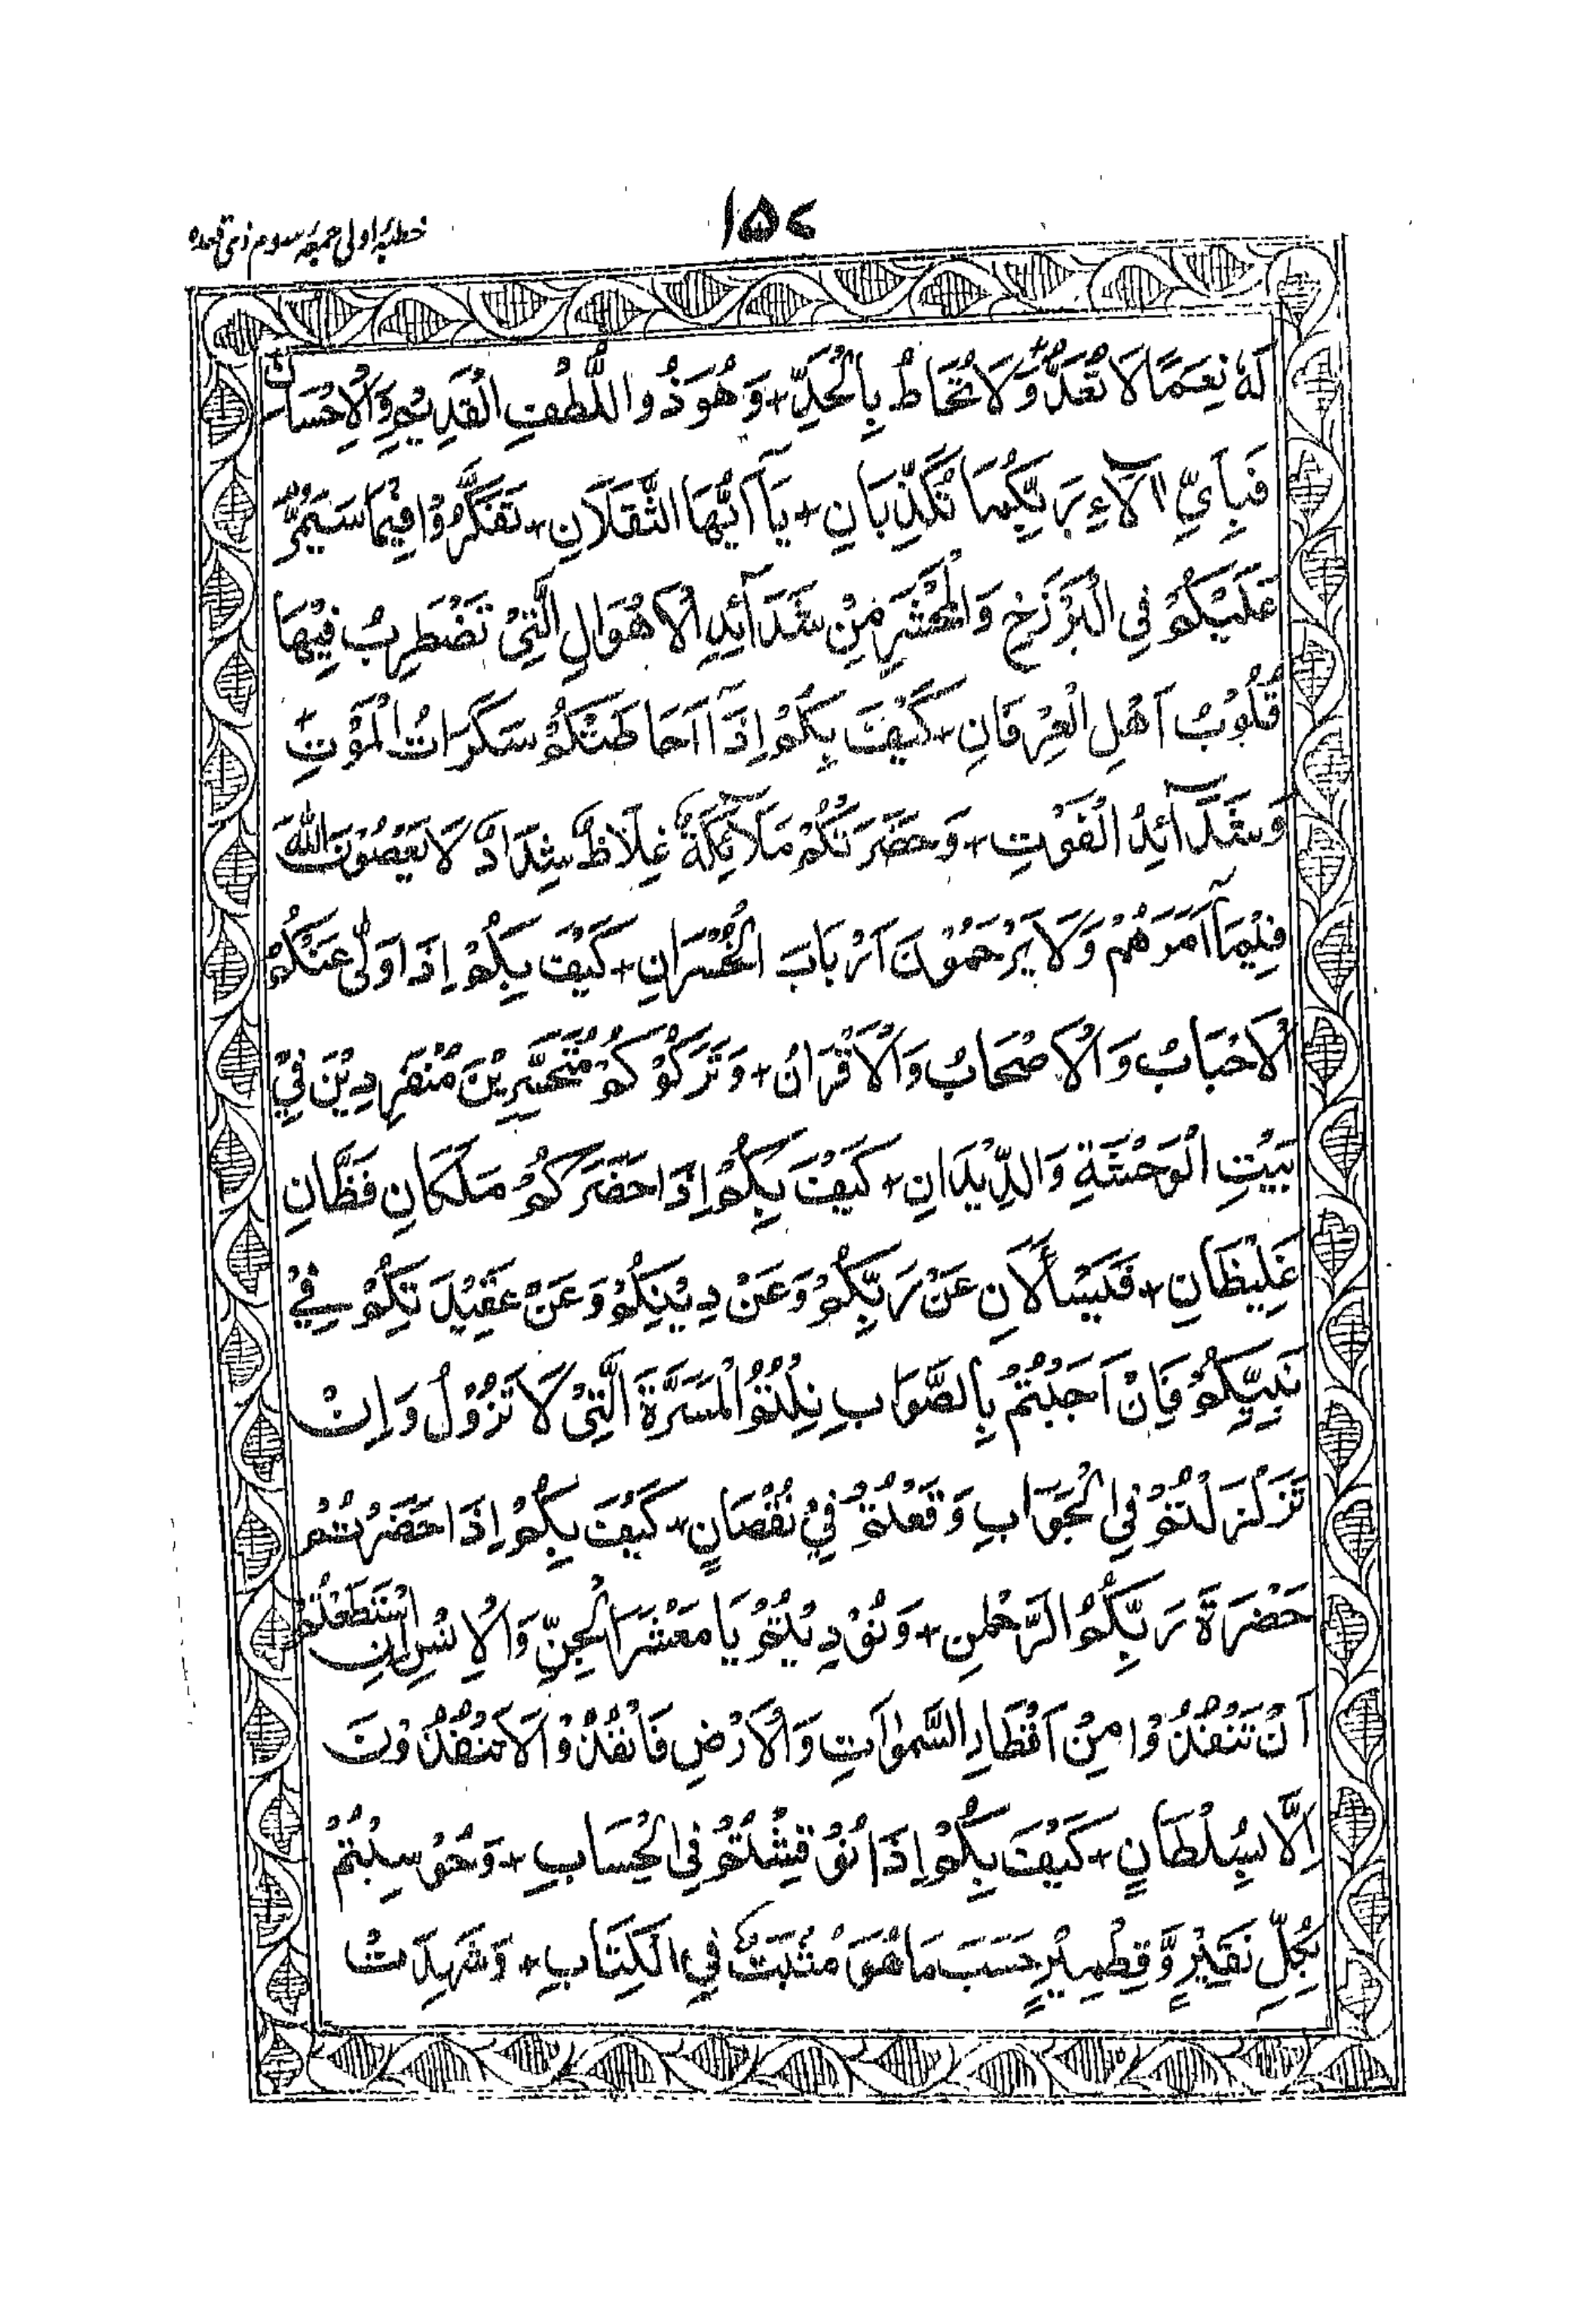 ۱۵۲
خطبۂ اولی جمعۂ سوم ذی قعدہ
لَهٗ نِعَمًا لَا تُعَدُّ وَّلَا تُحَاطُ بِالْحَدِّ + وَهُوَ ذُو اللُّطْفِ الْقَدِيْمِ وَالْاِحْسَانِ
فَبِاَيِّ اٰلَآءِ رَبِّكُمَا تُكَذِّبَانِ + يَآ اَيُّهَا الثَّقَلَانِ + تَفَكَّرُوْا فِيْمَا سَيَمُرُّ
عَلَيْكُمْ فِي الْبَرْزَخِ وَالْمَحْشَرِ مِنْ شَدَآئِدِ الْاَهْوَالِ الَّتِيْ تَضْطَرِبُ فِيْهَا
قُلُوْبُ اَهْلِ الْعِرْفَانِ + كَيْفَ بِكُمْ اِذَآ اَحَاطَتْكُمْ سَكَرَاتُ الْمَوْتِ +
وَشَدَآئِدُ الْفَوْتِ + وَحَضَرَتْكُمْ مَلَآئِكَةٌ غِلَاظٌ شِدَادٌ لَا يَعْصُوْنَ اللهَ
فِيْمَآ اَمَرَهُمْ وَلَا يَرْحَمُوْنَ اَرْبَابَ الْخُسْرَانِ + كَيْفَ بِكُمْ اِذَا وَلّٰى عَنْكُمْ
الْاَحْبَابُ وَالْاَصْحَابُ وَالْاَقْرَانُ + وَتَرَكُوْكُمْ مُتَحَيِّرِيْنَ مُنْفَرِدِيْنَ فِيْ
بَيْتِ الْوَحْشَةِ وَالدِّيْدَانِ + كَيْفَ بِكُمْ اِذَا حَضَرَكُمْ مَلَكَانِ فَظَّانِ
غَلِيْظَانِ + فَيَسْأَلَانِ عَنْ رَبِّكُمْ وَعَنْ دِيْنِكُمْ وَعَنْ عَقِيْدَتِكُمْ فِيْ
نَبِيِّكُمْ فَاِنْ اَجَبْتُمْ بِالصَّوَابِ نِلْتُمُ الْمَسَرَّةَ الَّتِيْ لَا تَزُوْلُ وَاِنْ
تَزَلْزَلْتُمْ فِي الْجَوَابِ وَقَعْتُمْ فِيْ نُقْصَانٍ + كَيْفَ بِكُمْ اِذَا حَضَرْتُمْ
حَضْرَةَ رَبِّكُمُ الرَّحْمٰنِ + وَنُوْدِيْتُمْ يَا مَعْشَرَ الْجِنِّ وَالْاِنْسِ اِنِ اسْتَطَعْتُمْ
اَنْ تَنْفُذُوْا مِنْ اَقْطَارِ السَّمٰوَاتِ وَالْاَرْضِ فَانْفُذُوْا لَا تَنْفُذُوْنَ
اِلَّا بِسُلْطَانٍ + كَيْفَ بِكُمْ اِذَا نُوْقِشْتُمْ فِي الْحِسَابِ + وَحُوْسِبْتُمْ
بِكُلِّ نَقِيْرٍ وَّقِطْمِيْرٍ حَسَبَ مَا هُوَ مُثْبَتٌ فِي الْكِتَابِ + وَشَهِدَتْ